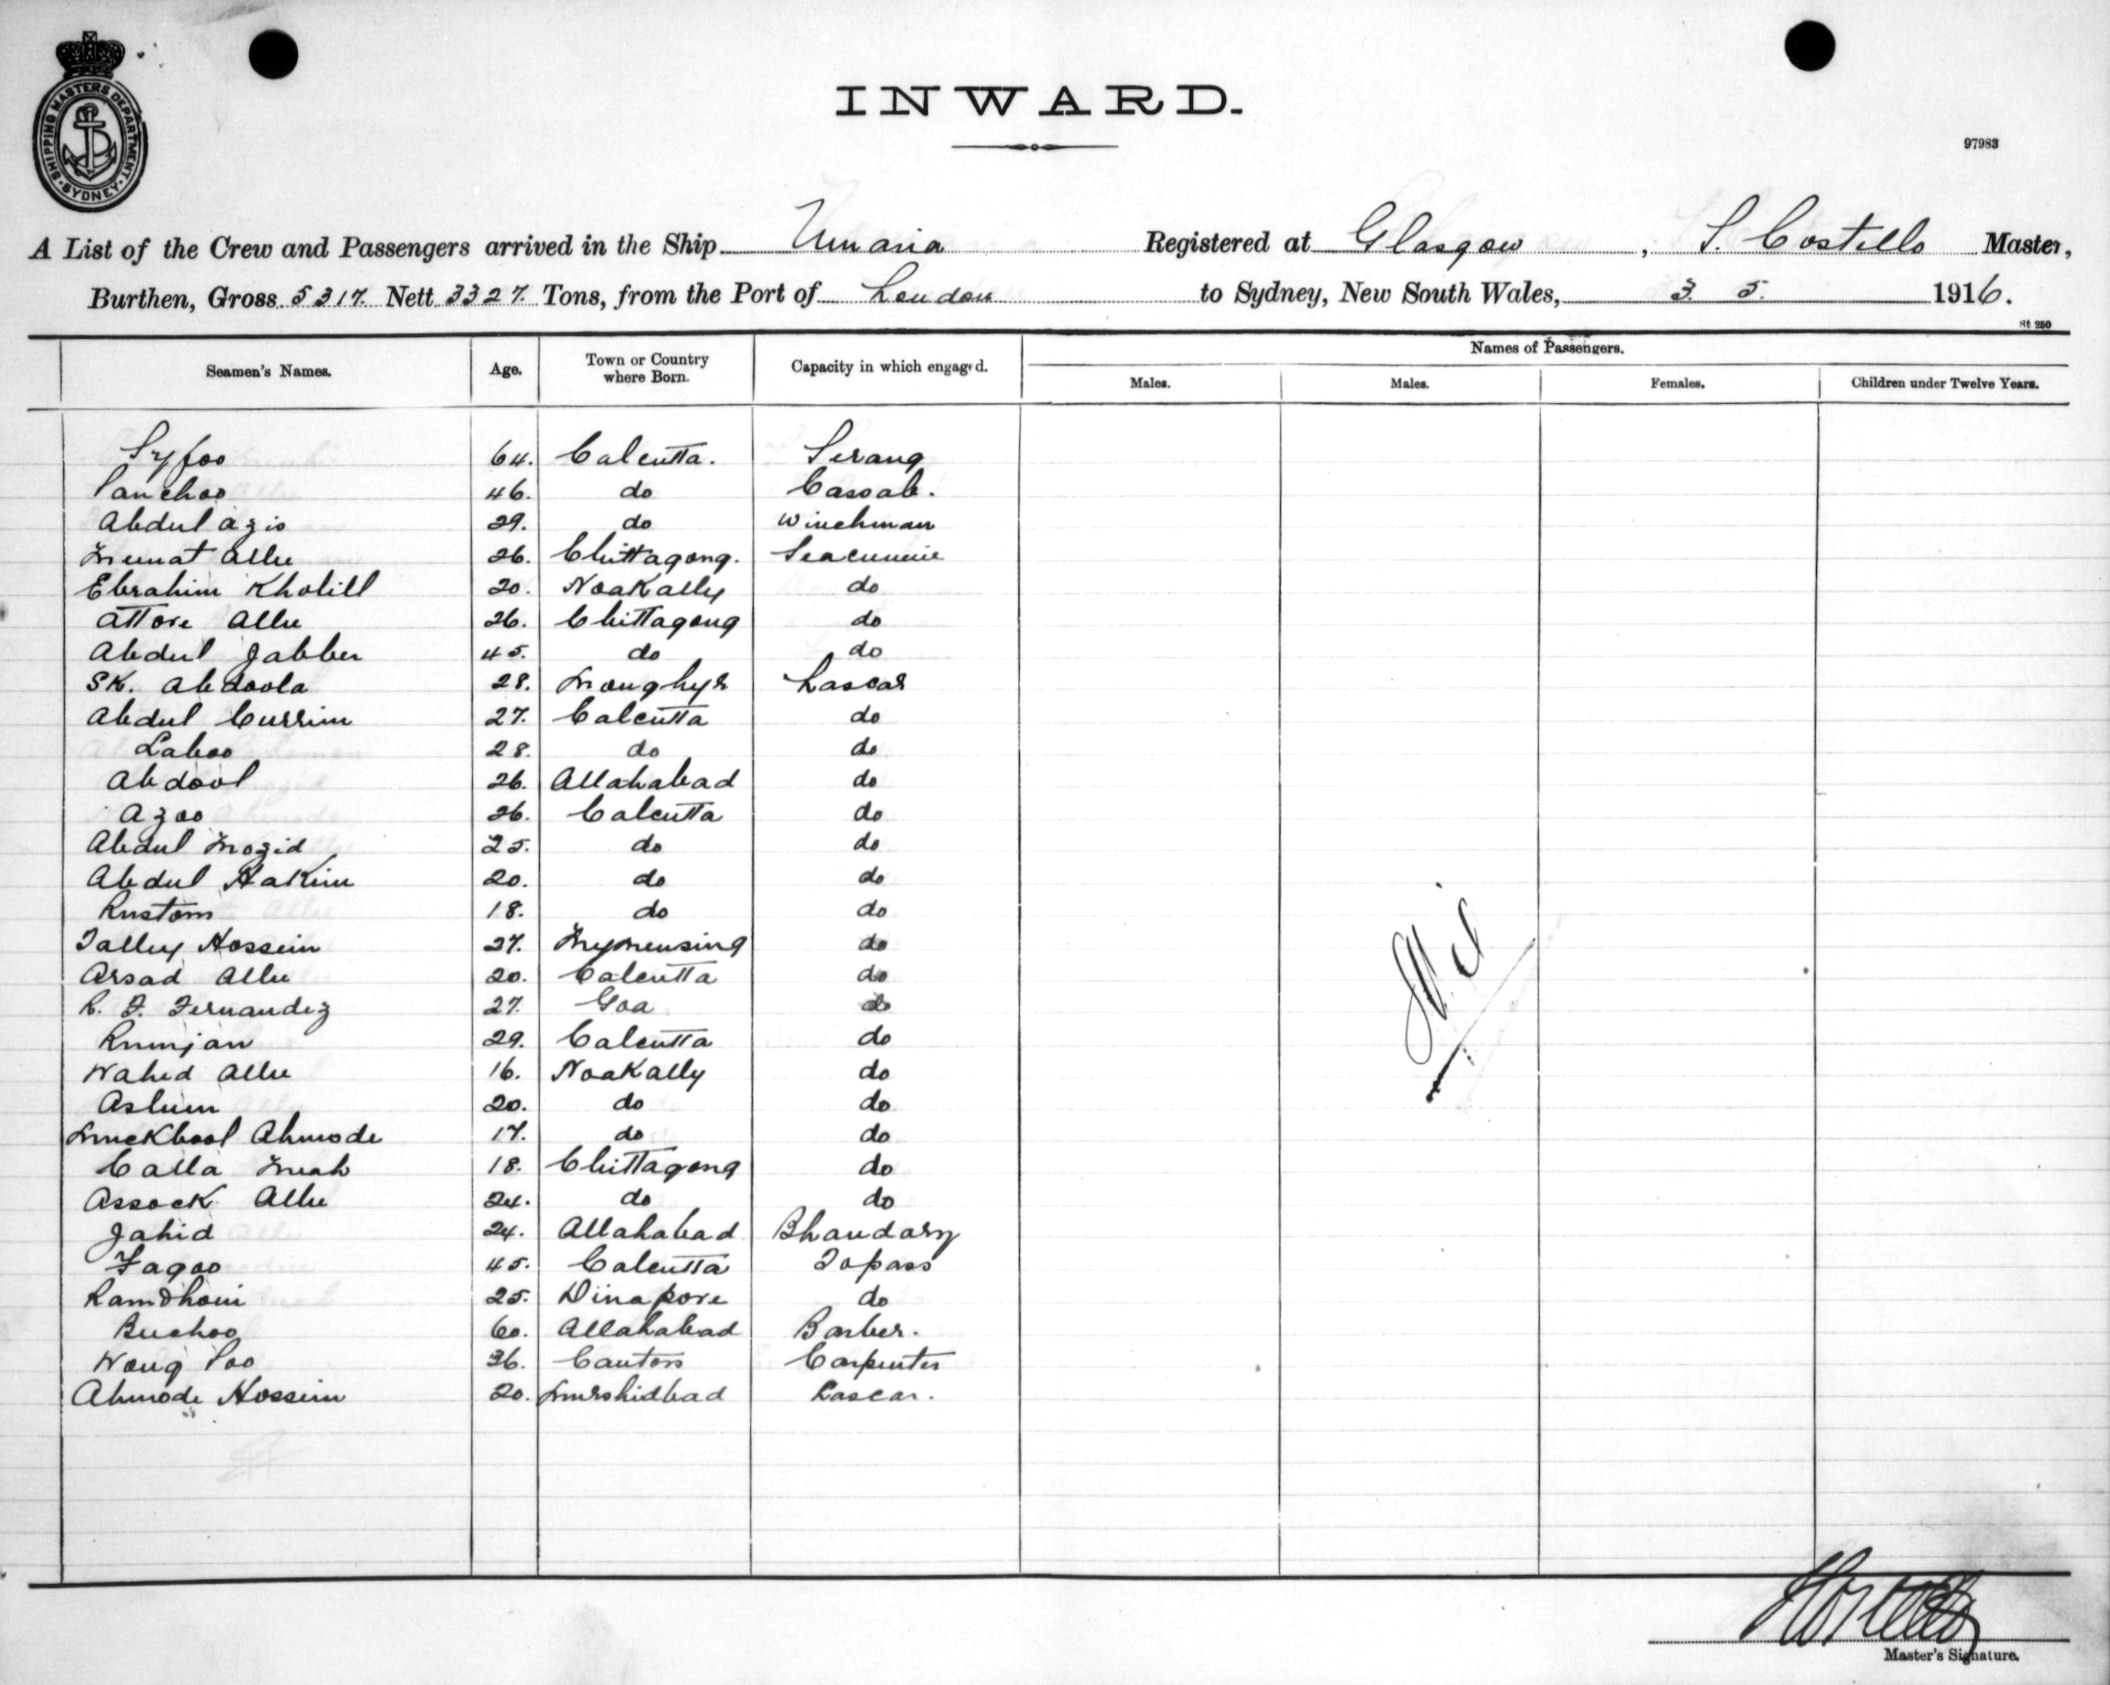 SHIPPING MASTERS DEPARTMENT SYDNEY
INWARD.
97983
A List of the Crew and Passengers arrived in the Ship Umaria Registered at Glasgow, S. Costello Master,
Burthen, Gross 5317. Nett 3327. Tons, from the Port of London to Sydney, New South Wales, 3. 5. 1916.
St 250
Seamen's Names. Age. Town or Country where Born. Capacity in which engaged. Names of Passengers.
Males. Males. Females. Children under Twelve Years.
Syfoo 64. Calcutta. Serang
Panchoo 46. do Cassab.
Abdul Azis 29. do Winchman
Munat Allie 26. Chittagong. Seacunnie
Ebrahim Kholill 20. Noakally do
Attore Allie 26. Chittagong do
Abdul Jabber 45. do do
SK. Abdoola 28. Monghyr Lascar
Abdul Currim 27. Calcutta do
Laboo 28. do do
Abdool 26. Allahabad do
Azoo 26. Calcutta do
Abdul Mozid 25. do do
Abdul Hakim 20. do do
Rustom 18. do do
Talley Hossein 27. Mymensing do
Arsad Allie 20. Calcutta do
R. F. Fernandez 27. Goa do
Rumjan 29. Calcutta do
Wahed Allie 16. Noakally do
Aslum 20. do do
Muckbool Ahmode 17. do do
Calla Meah 18. Chittagong do
Assock Allie 24. do do
Jahid 24. Allahabad Bhandary
Fagoo 45. Calcutta Topass
Ramdhoni 25. Dinapore do
Buchoo 60. Allahabad Barber.
Wong Poo 36. Canton Carpenter
Ahmode Hossein 20. Murshidbad Lascar.
Nil
Master's Signature.